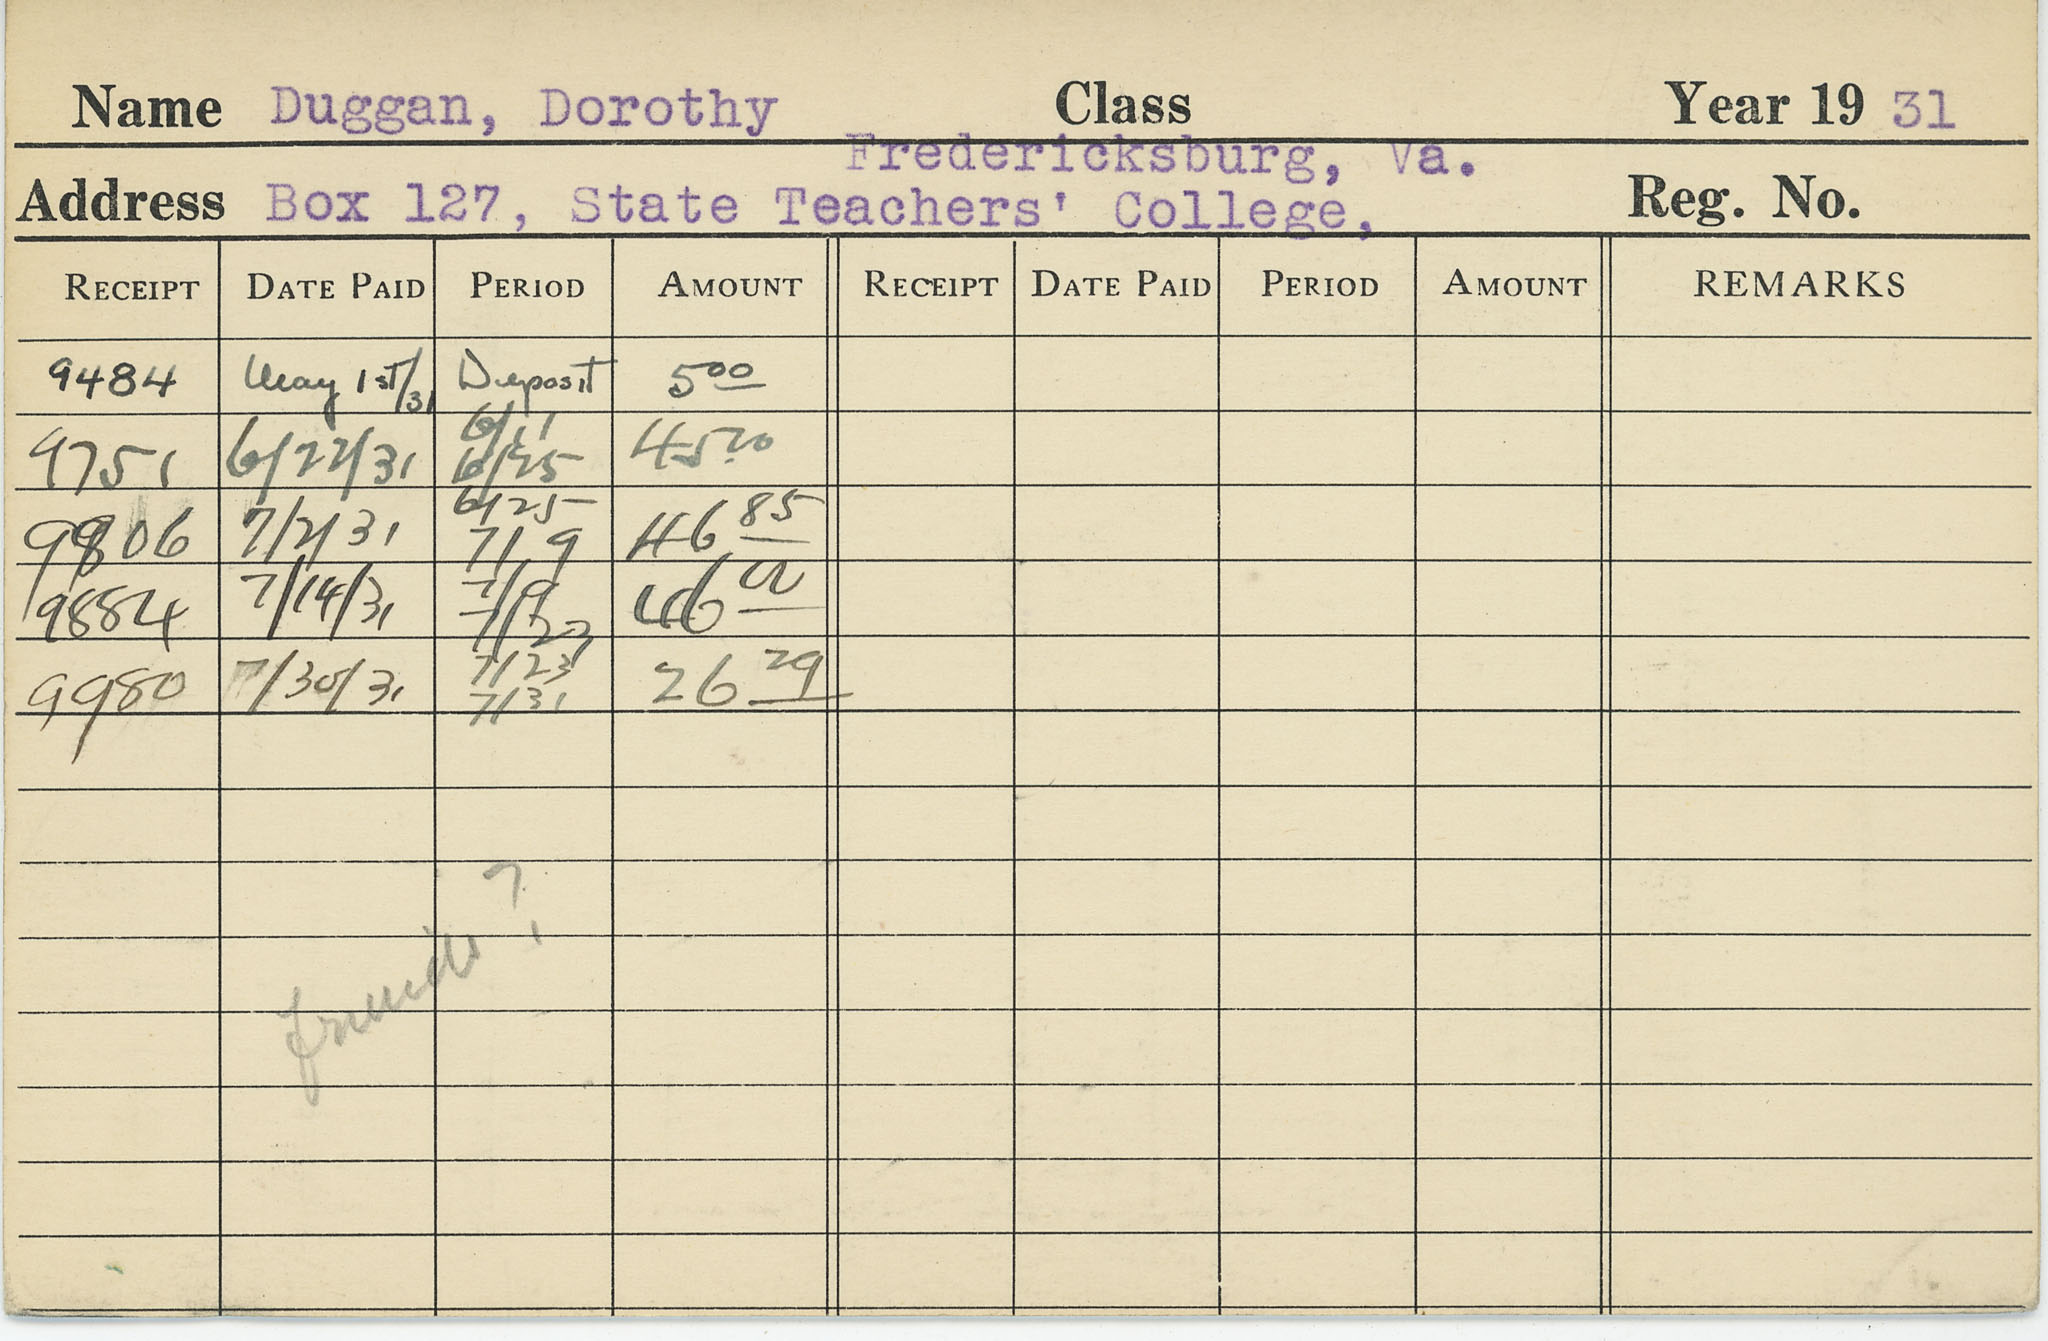 Name Duggan, Dorothy Class Year 19 31
Fredericksburg, Va.
Address Box 127, State Teachers' College, Reg. No.
RECEIPT DATE PAID PERIOD AMOUNT RECEIPT DATE PAID PERIOD AMOUNT REMARKS
9484 May 1st/31 Deposit 5 00
6/11
9751 6/22/31 6/25 45
6/25
9806 7/2/31 7/9 46 85
7/9
9884 7/14/31 7/23 46 00
7/23
9980 7/30/31 26 29
7/31